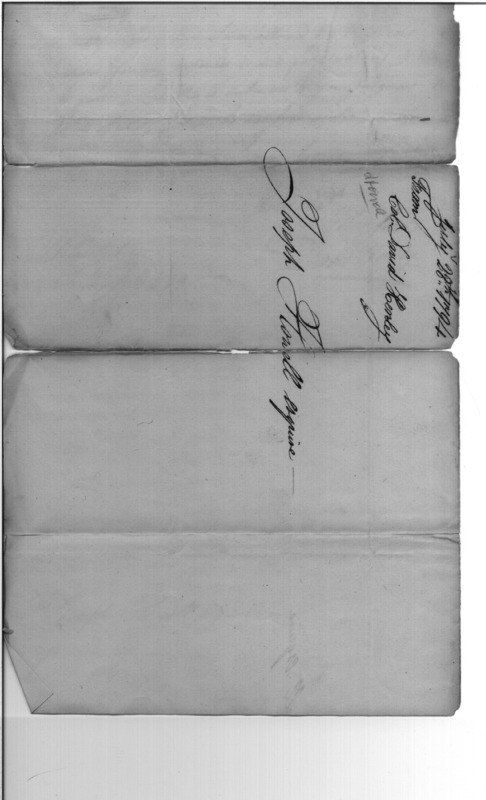 July 28th 1794
From
Col. David Henley
Joseph Howell Esquire